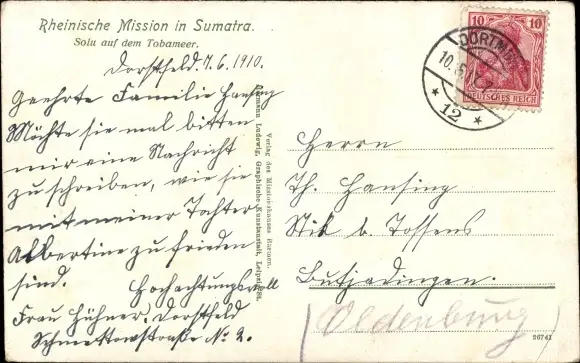 Rheinische Mission in Sumatra.
Solu auf dem Tobameer.
Dorstfeld 7.6.1910.
Geehrte Familie Hansing
Möchte sie mal bitten
mir eine Nachricht
zu schreiben, wie sie
mit meiner Tochter
Albertine zu frieden
sind. Hochachtungsvoll
Frau Hühner, Dorstfeld
Schmettowstraße No 2.
Verlag des Missionshauses Barmen.
Hermann Ludewig, Graphische Kunstanstalt, Leipzig
10 10
DEUTSCHES REICH
DORTMUND
12
Herrn
Th. Hansing
b. Tossens
Butjadingen.
(Oldenburg)
26741